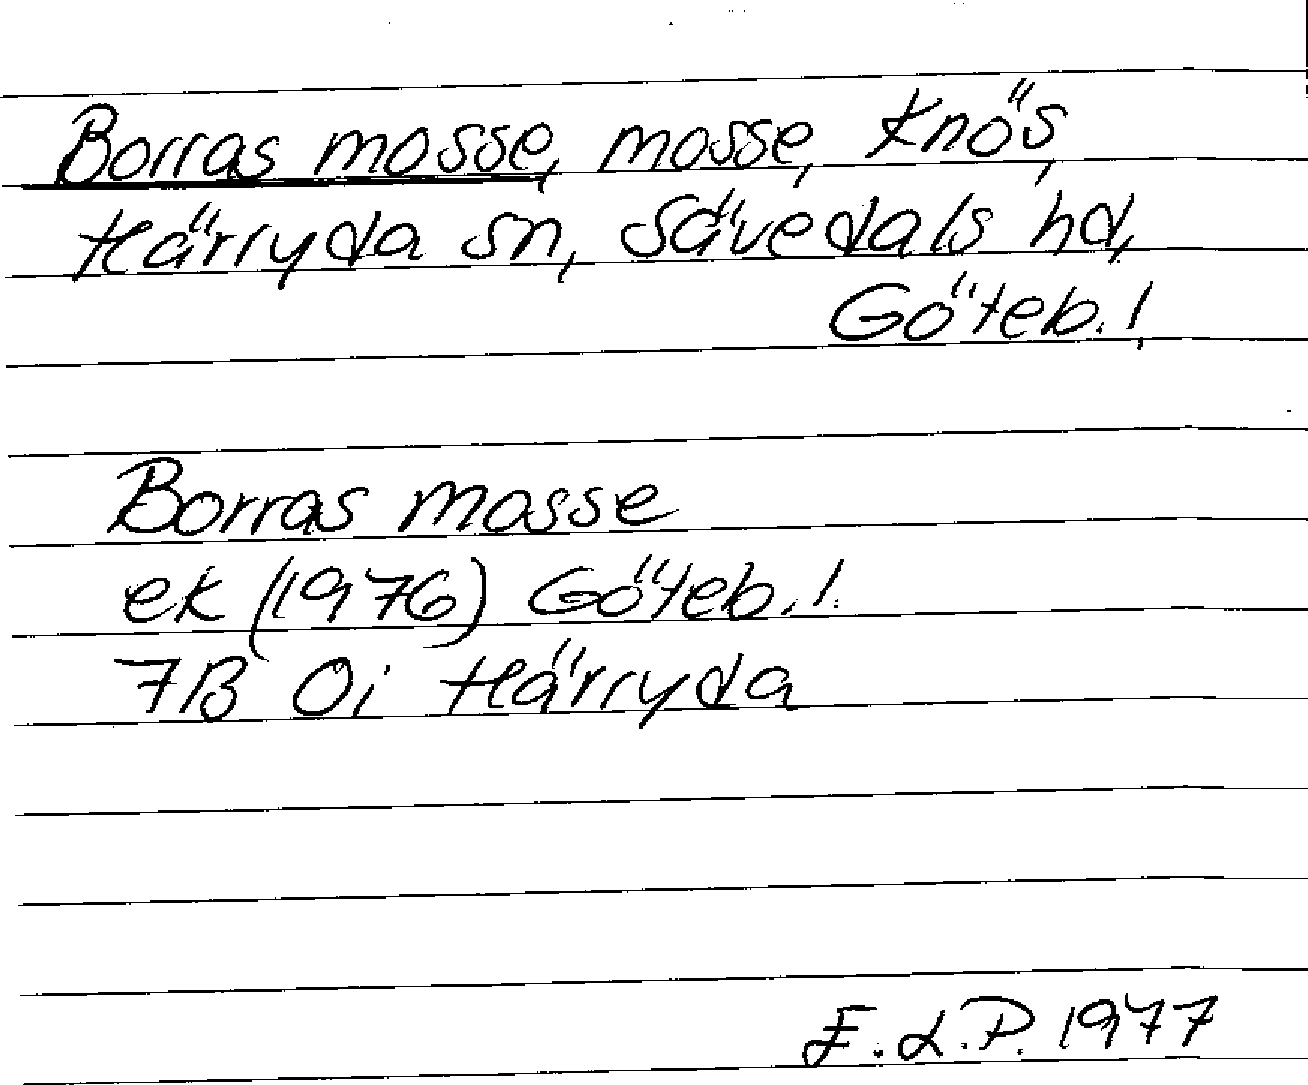 Borras mosse, mosse, Knös,
Härryda sn, Sävedals hd,
Göteb.!
Borras mosse
ek (1976) Göteb.!
7B 0i Härryda
E.L.P. 1977